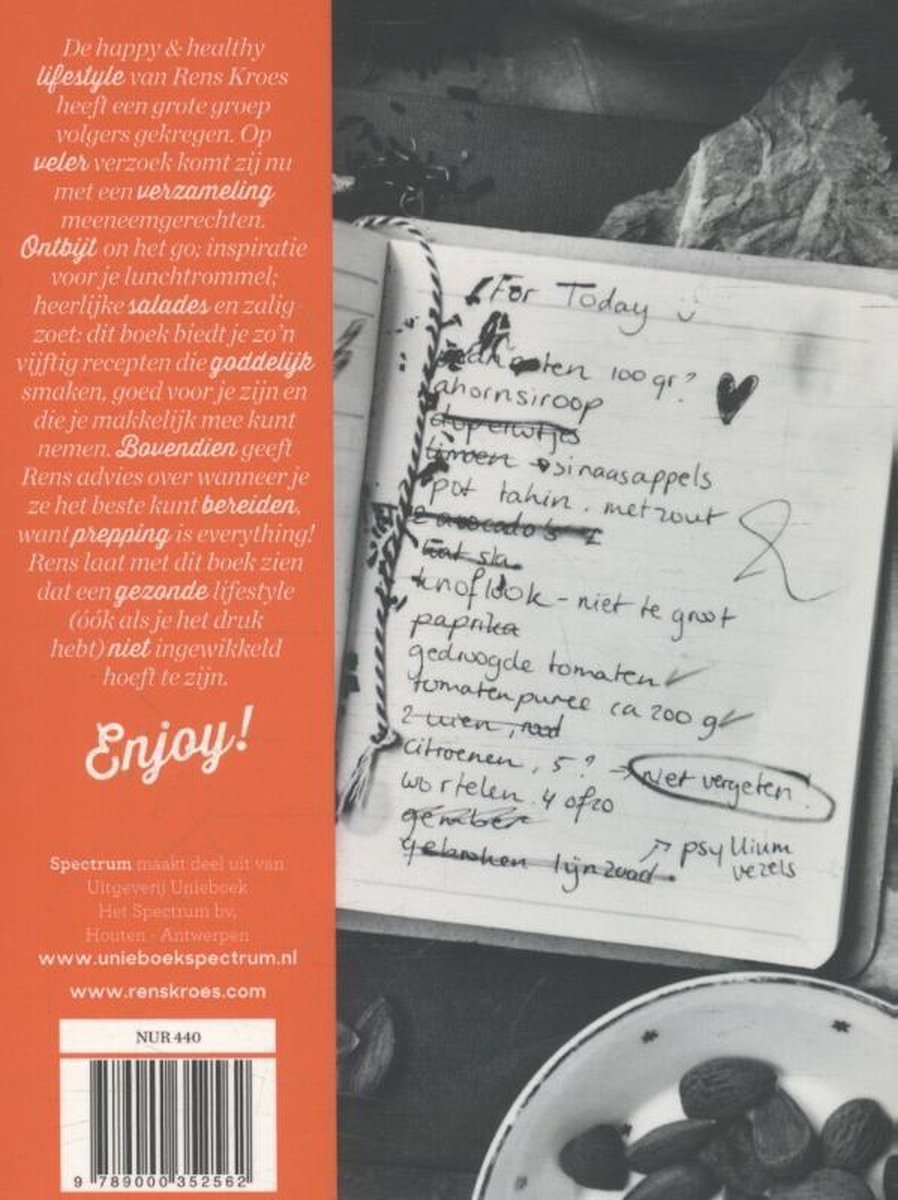 De happy & healthy
lifestyle van Rens Kroes
heeft een grote groep
volgers gekregen. Op
veler verzoek komt zij nu
met een verzameling
meeneemgerechten.
Ontbijt on het go; inspiratie
voor je lunchtrommel;
heerlijke salades en zalig
zoet: dit boek biedt je zo'n
vijftig recepten die goddelijk
smaken, goed voor je zijn en
die je makkelijk mee kunt
nemen. Bovendien geeft
Rens advies over wanneer je
ze het beste kunt bereiden,
want prepping is everything!
Rens laat met dit boek zien
dat een gezonde lifestyle
(óók als je het druk
hebt) niet ingewikkeld
hoeft te zijn.
Enjoy!
Spectrum maakt deel uit van
Uitgeverij Unieboek
Het Spectrum bv,
Houten - Antwerpen
www.unieboekspectrum.nl
www.renskroes.com
NUR 440
9 789000 352562
For Today
100 gr?
ahornsiroop
doperwtjes
limoen sinaasappels
pot tahin. met zout
2 avocado's
sla
knoflook - niet te groot
paprika
gedroogde tomaten
tomatenpuree ca 200 g
2 uien, rood
citroenen, 5? → niet vergeten!
wortelen 4 of zo
gember
gebroken lijnzaad → psyllium
vezels